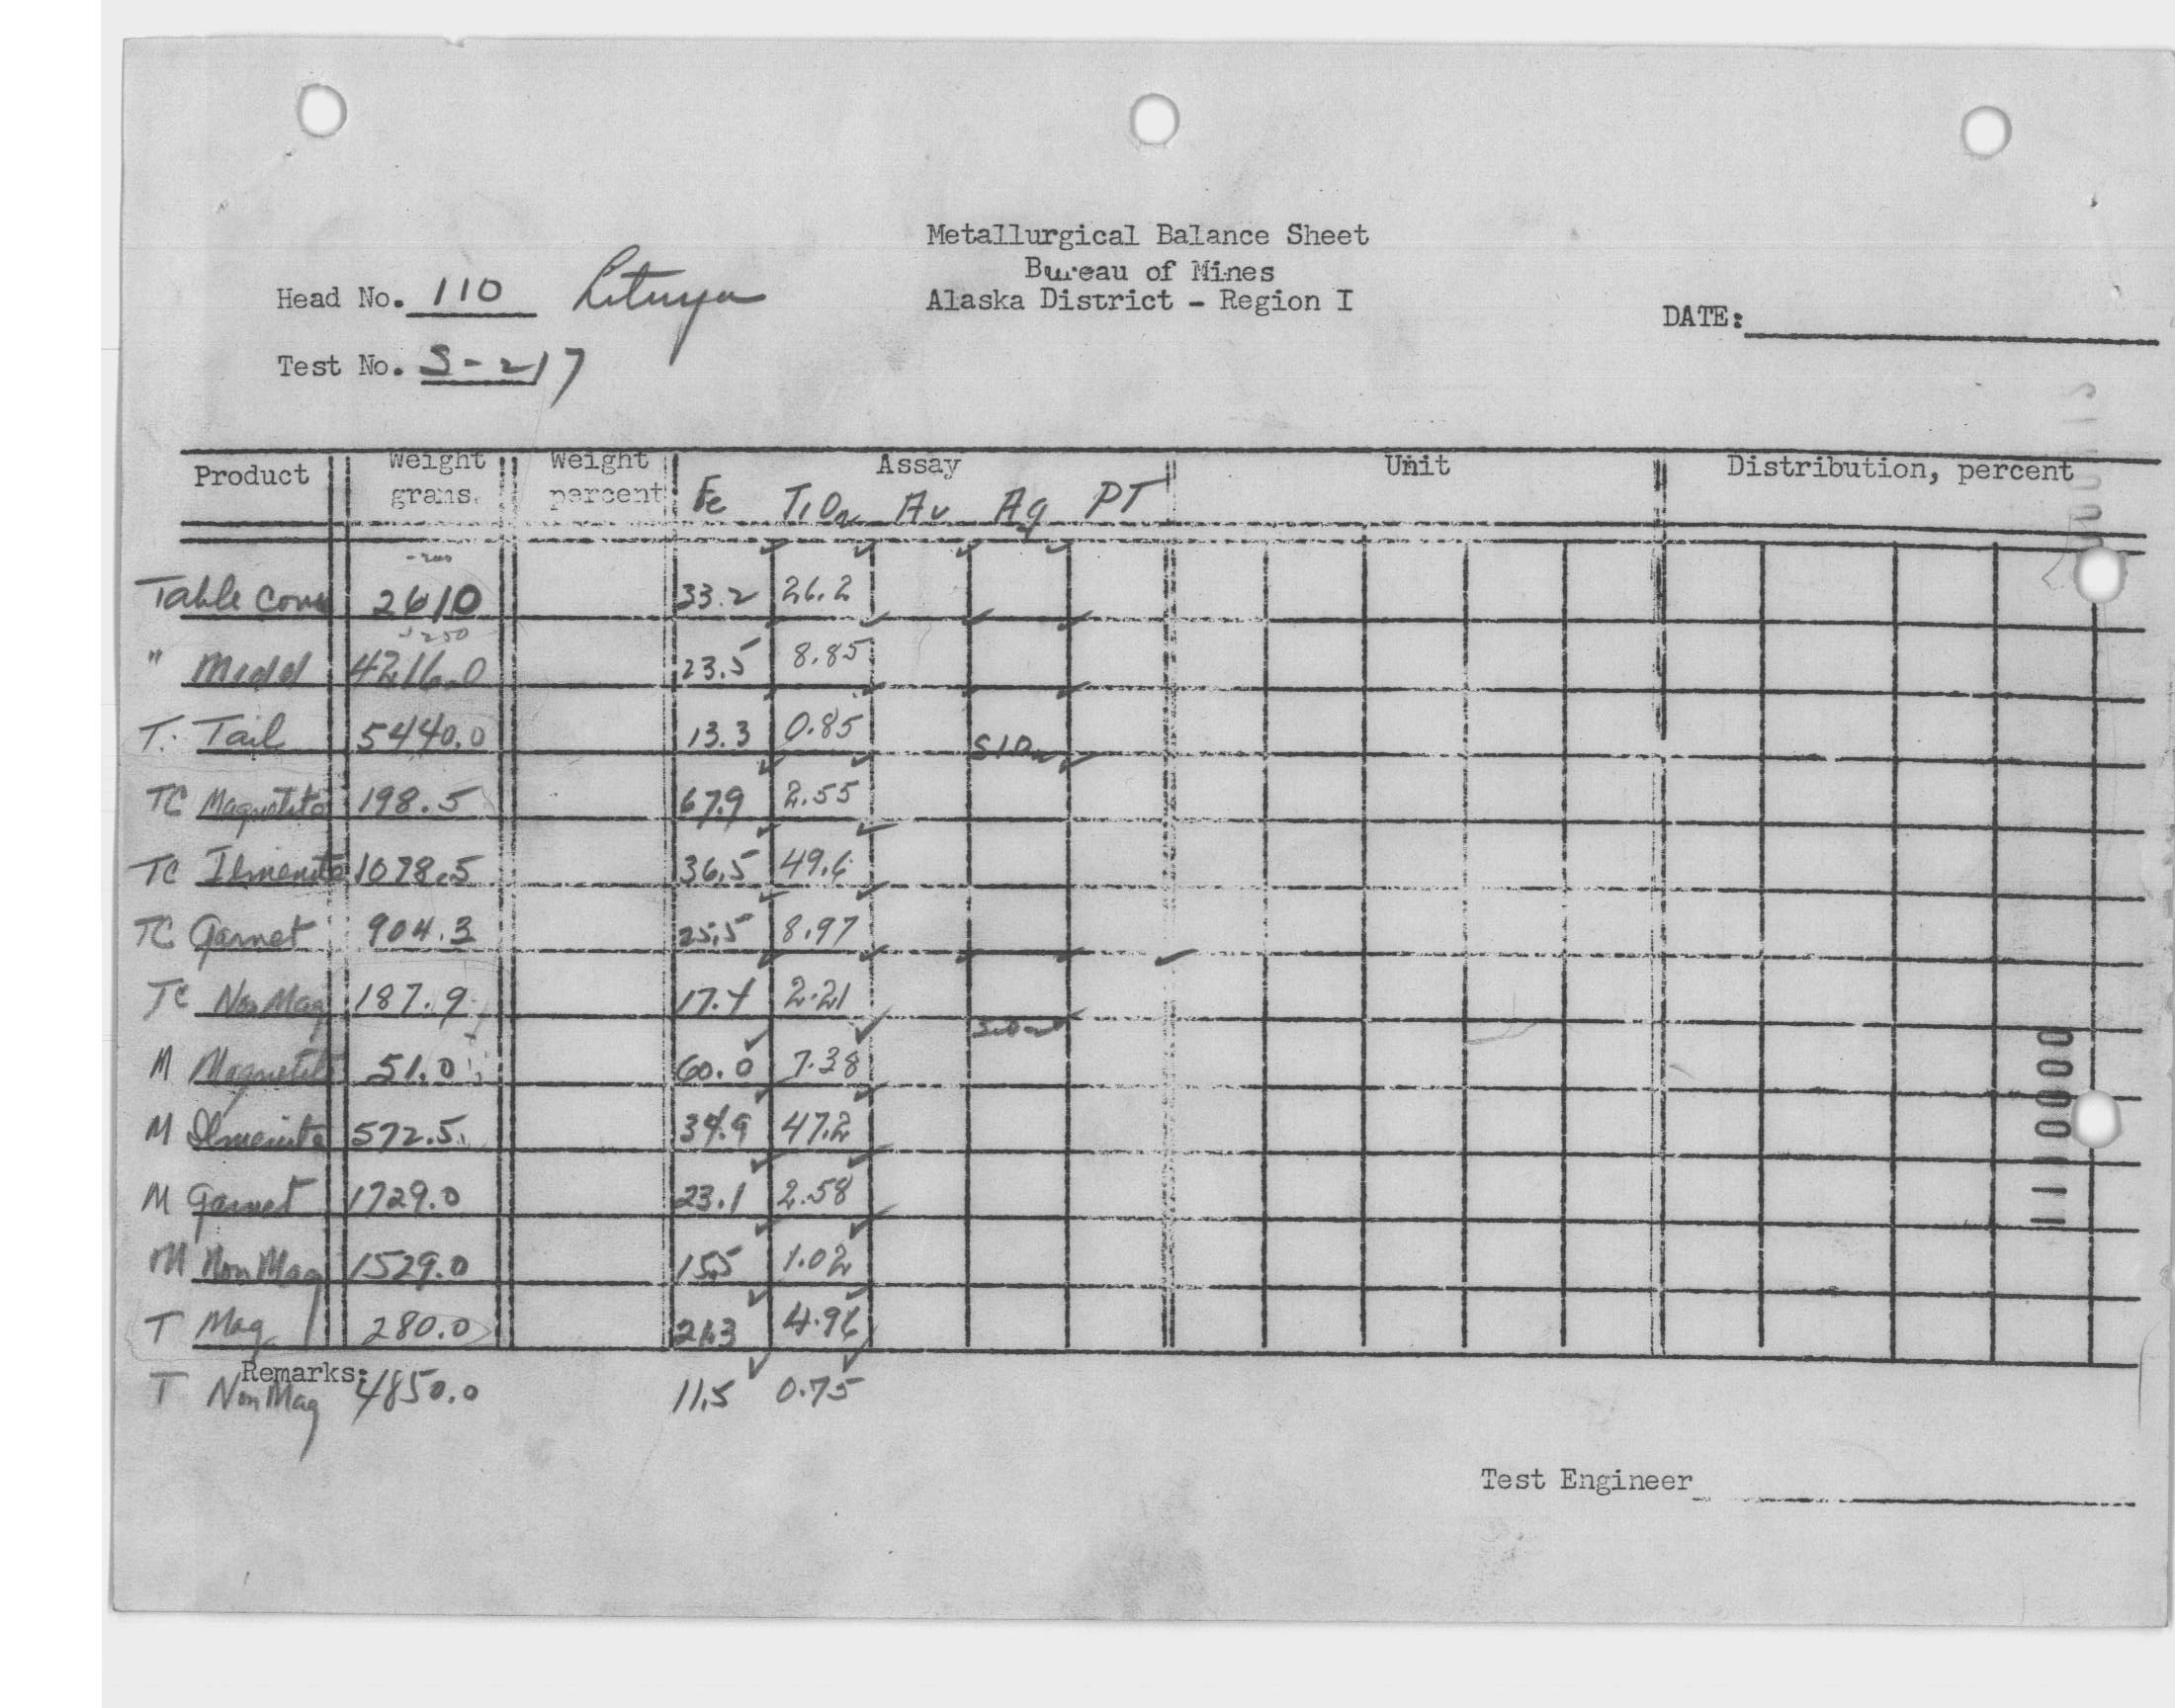 Metallurgical Balance Sheet
Bureau of Mines
Alaska District - Region I
Head No. 110 Lituya
DATE:
Test No. S-217
Product Weight grams. Weight percent Assay Unit Distribution, percent
Fe TiO2 Au Ag PT
-200
Table Conc 2610 33.2 26.2
250
" Midd 4216.0 23.5 8.85
T. Tail 5440.0 13.3 0.85
SiO2
TC Magnetite 198.5 67.9 2.55
TC Ilmenite 1078.5 36.5 49.6
TC Garnet 904.3 25.5 8.97
TC Non Mag 187.9 17.4 2.21
M Magnetite 51.0 60.0 7.38
M Ilmenite 572.5 34.9 47.2
M Garnet 1729.0 23.1 2.58
M Non Mag 1529.0 15.5 1.02
T Mag 280.0 21.3 4.96
Remarks:
T Non Mag 4850.0 11.5 0.75
Test Engineer
11100000